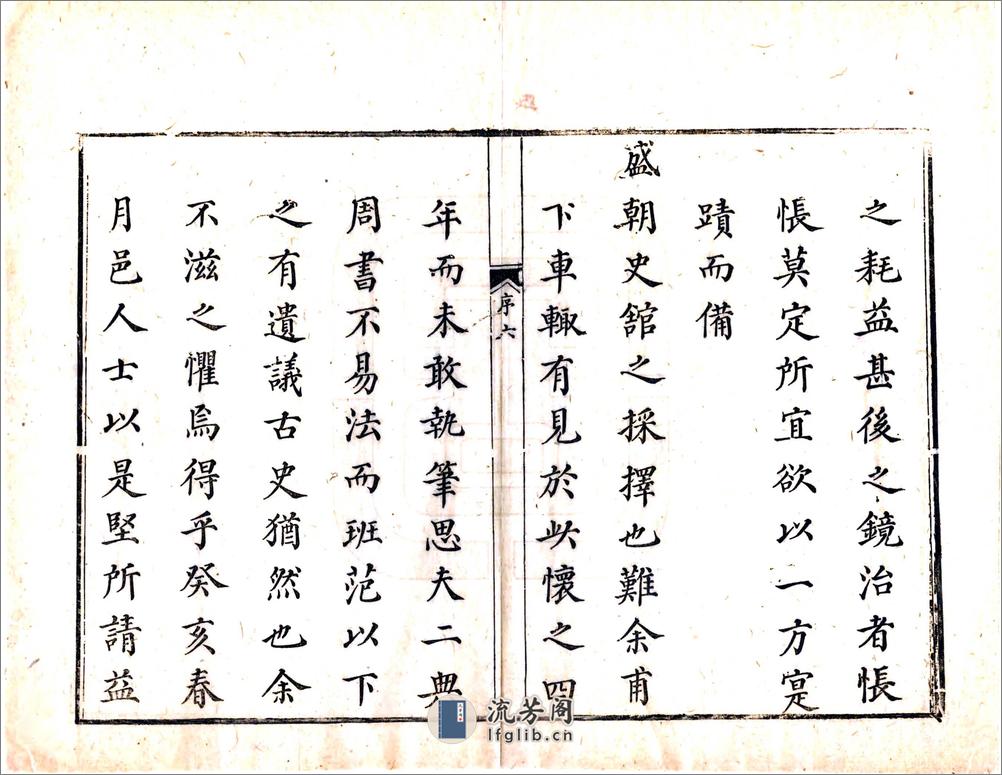 之耗益甚後之鏡治者悵
悵莫定所宜欲以一方寔
蹟而備
盛朝史舘之採擇也難余甫
下車輙有見於此懷之四
序六
年而未敢執筆思夫二典
周書不易法而班范以下
之有遺議古史猶然也余
不滋之懼烏得乎癸亥春
月邑人士以是堅所請益
流芳阁
lfglib.cn